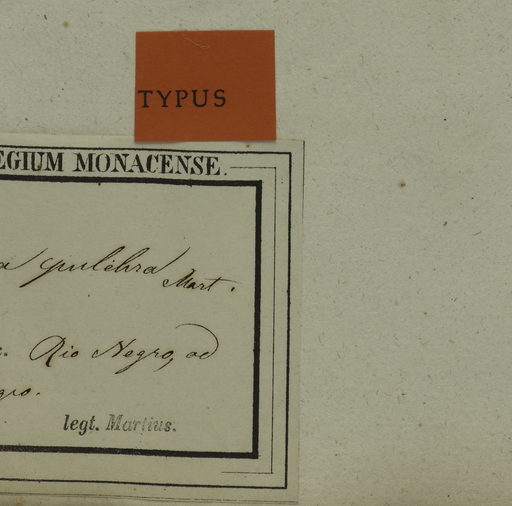 TYPUS
EGIUM MONACENSE.
a pulchra Mart.
. Rio Negro, ad
gro.
legt. Martius.